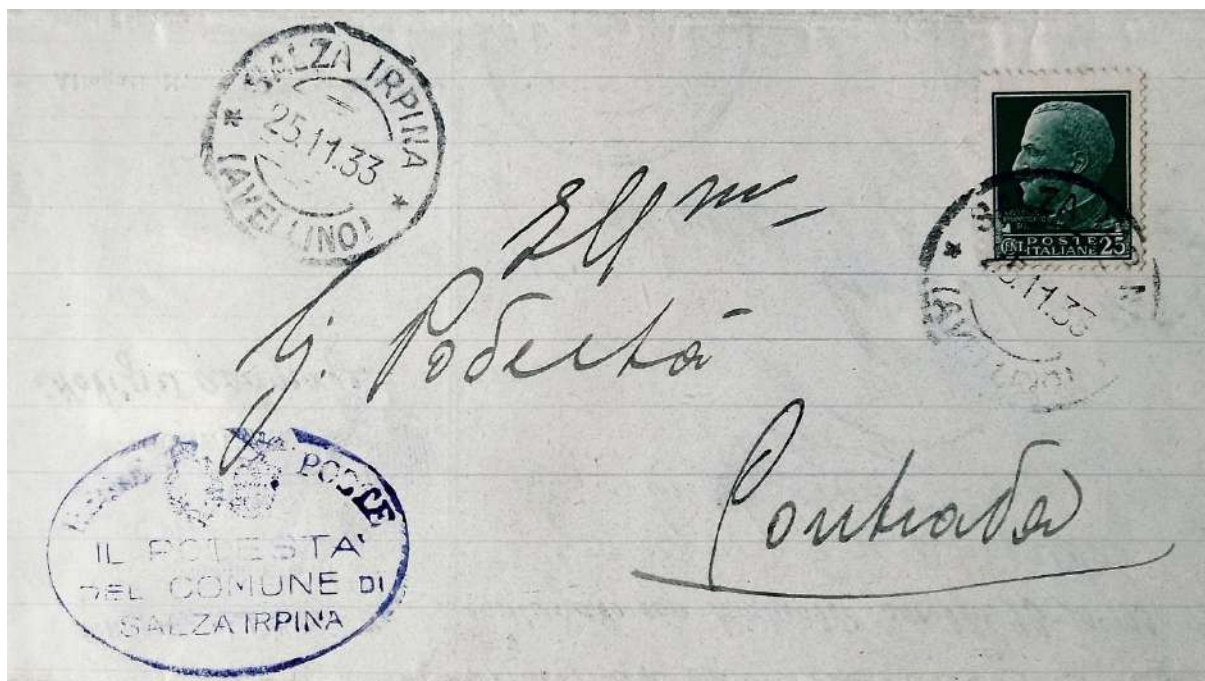 SALZA IRPINA
25.11.33
(AVELLINO)
POSTE
ITALIANE
CENT. 25
SALZA IRPINA
25.11.33
(AVELLINO)
Ill.mo
Sig. Podestà
Contrada
REGIE POSTE
IL PODESTA'
DEL COMUNE DI
SALZA IRPINA